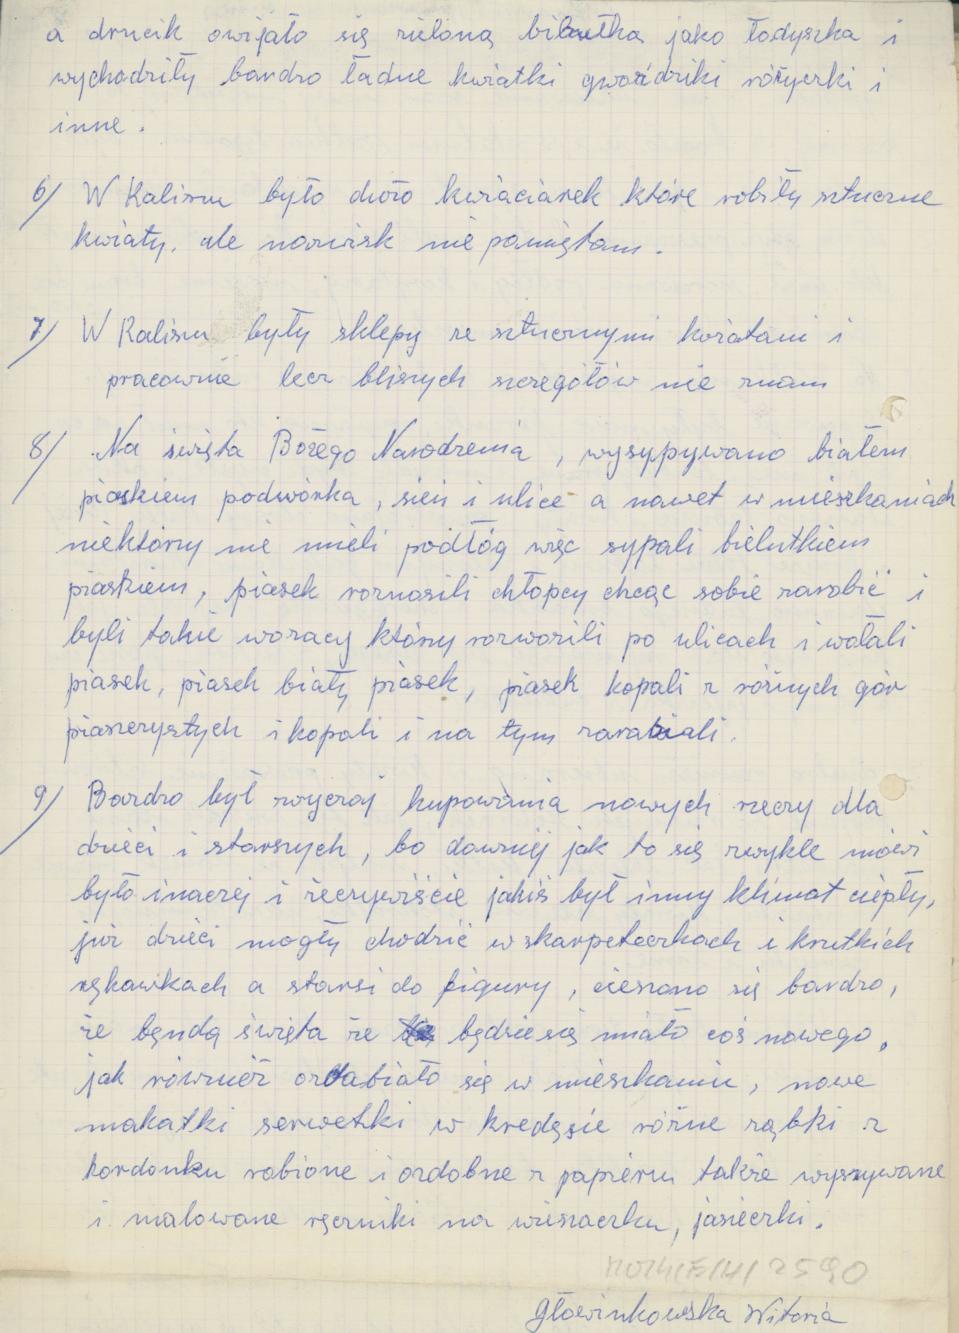 a drucik owijało się zieloną bibułką jako łodyszka i
wychodziły bardzo ładne kwiatki gwoździki różyczki i
inne.
6/ W Kaliszu było dużo kwiaciarek które robiły sztuczne
kwiaty, ale nazwisk nie pamiętam.
7/ W Kaliszu były sklepy ze sztucznymi kwiatami i
pracownie lecz bliszych szczegółów nie znam
8/ Na święta Bożego Narodzenia, wysypywano białem
piaskiem podwórka, sień i ulice a nawet w mieszkaniach
niektórzy nie mieli podłóg więc sypali bielutkiem
piaskiem, piasek roznosili chłopcy chcąc sobie zarobić i
byli takie woracy którzy rozwozili po ulicach i wołali
piasek, piasek biały piasek, piasek kopali z różnych gór
piaszczystych i kopali i na tym zarabiali.
9/ Bardzo był zwyczaj kupowania nowych rzeczy dla
dzieci i starszych, bo dawniej jak to się zwykle mówi
było inaczej i rzeczywiście jakiś był inny klimat ciepły,
już dzieci mogły chodzić w skarpeteczkach i krutkich
rękawkach a starsi do figury, cieszono się bardzo,
że będą święta że będzie się miało coś nowego,
jak również ozdabiało się w mieszkaniu, nowe
makatki serwetki w kredęsie różne ząbki z
kordonku robione i ozdobne z papieru także wyszywane
i malowane ręczniki na wieszaczku, jasieczki.
2590
Głowinkowska Witoria